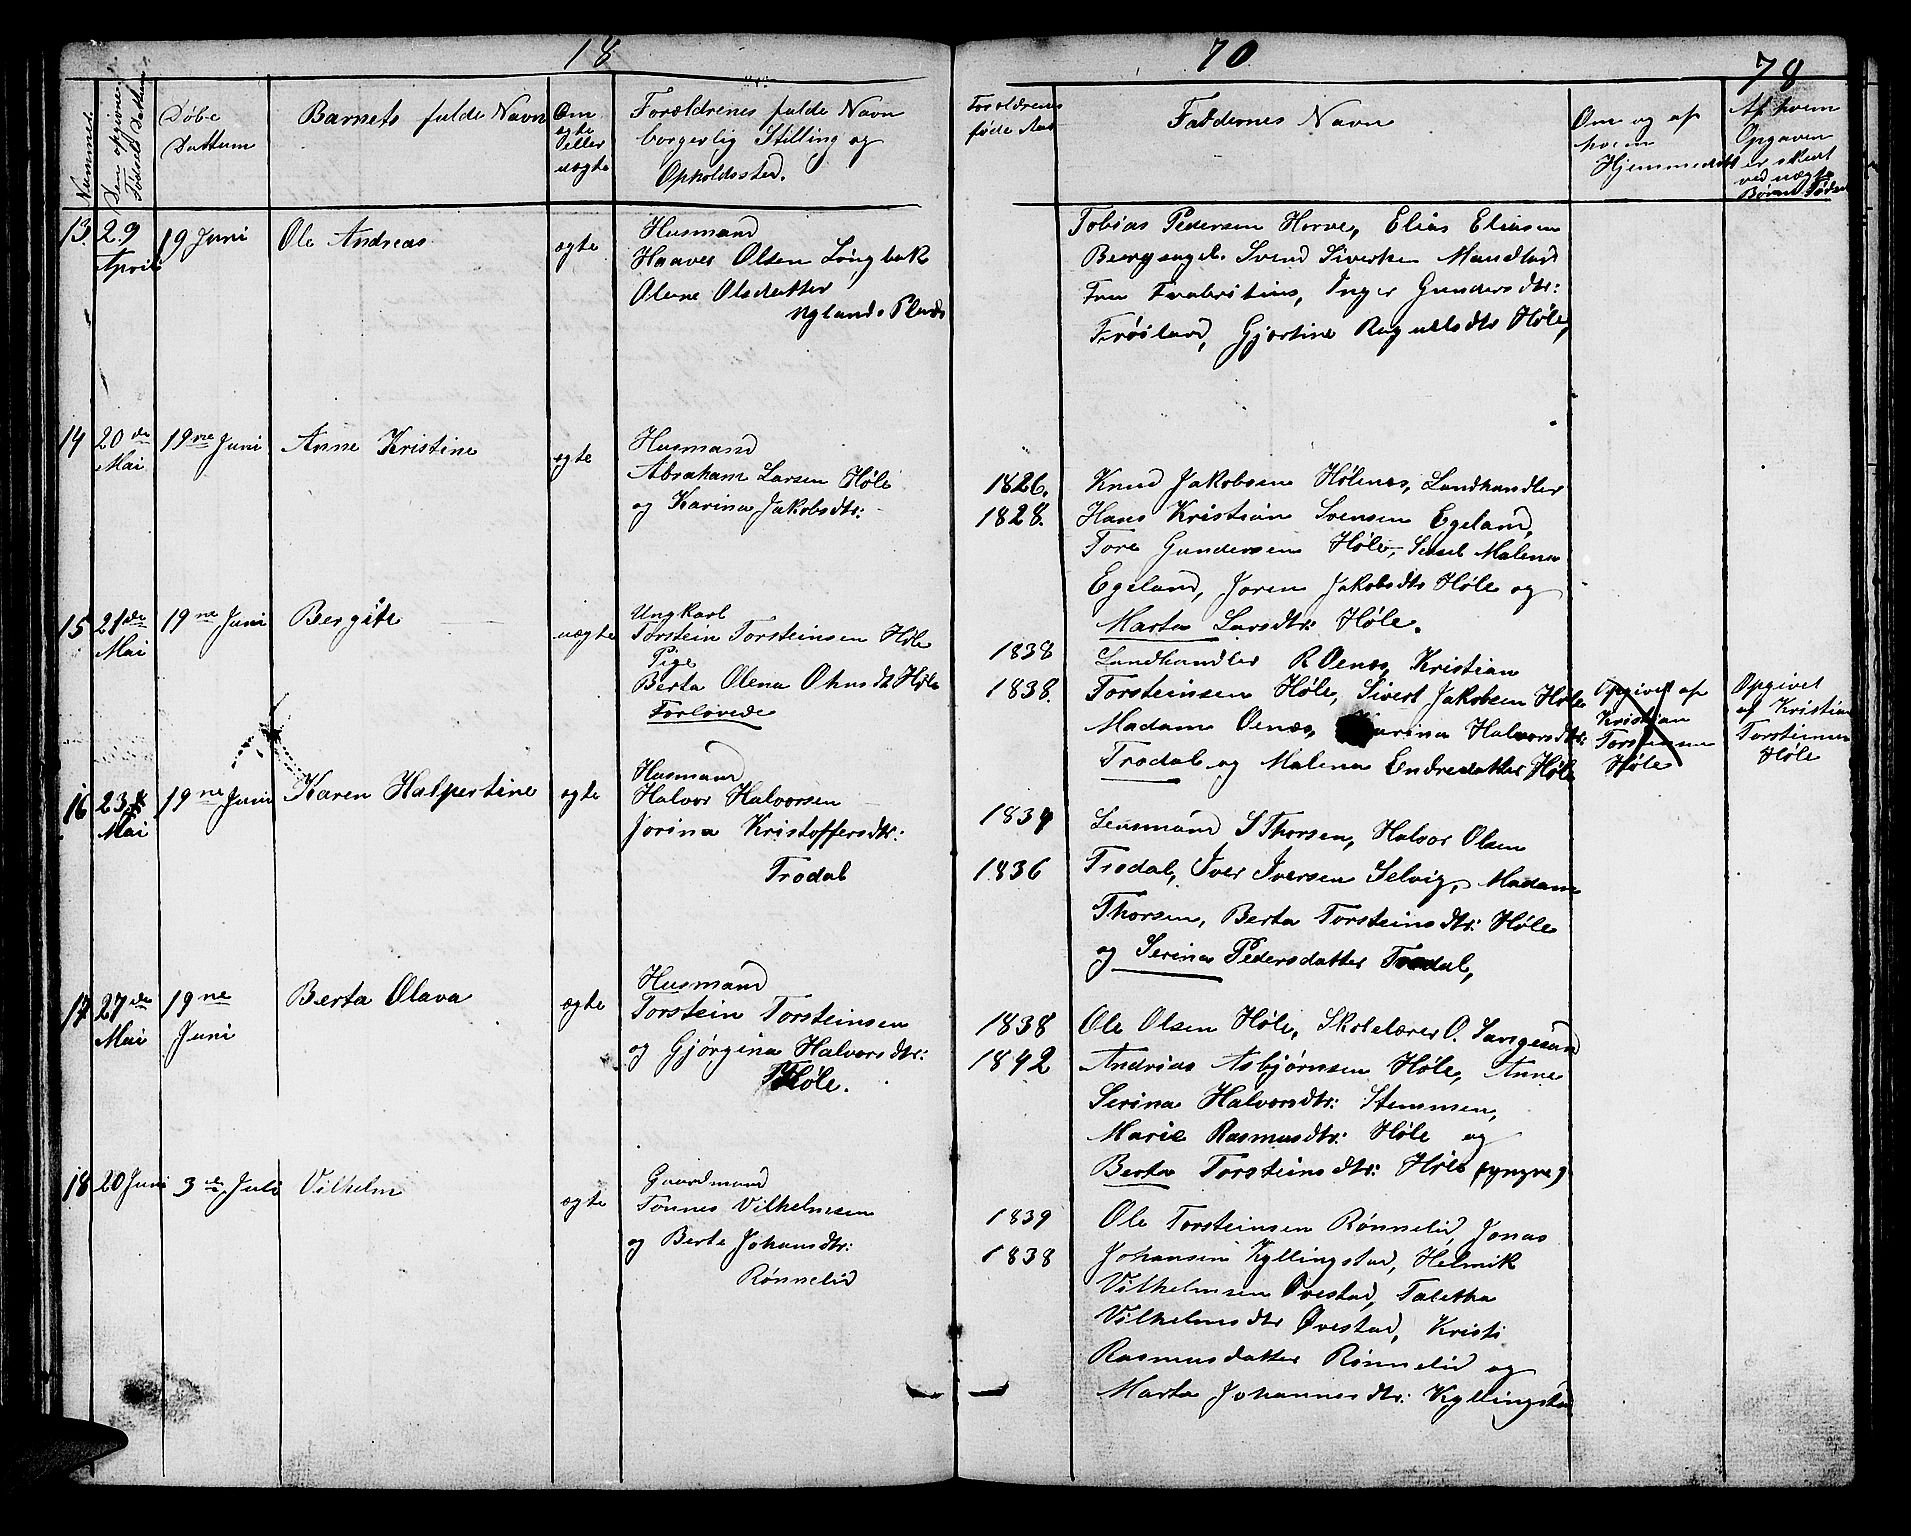 18
70
78
Nummer.
Den opgivne
Fødsels Dattum
Døbe
Dattum
Barnets fulde Navn
Om
egte
eller
uegte
Forældrenes fulde Navn
borgerlig Stilling og
Opholdssted.
Forældrenes
føde Aar
Faddernes Navn
Om og af
hvem
Hjemmedøbt
Af hvem
Opgaven
er skeet
ved uægte
Børns Fødsel
13. 29 April 19 Juni Ole Andreas egte
Husmand
Haaver Olsen
Olene Olsdatter
Nylands Plads
Tobias Pedersen Horve, Elias Eliasen
Bergsagel. Svend Siversen
Inger Gundersdtr:
Frøiland, Gjertine Høle,
14 20de Mai 19ne Juni Anne Kristine egte
Husmand
Abraham Larsen Høle
og Karina Jakobsdtr:
1826.
1828.
Knud Jakobsen Hølenes, Landhandler
Hans Kristian Svensen Egeland,
Tore Gundersen Høle, Sissel Malena
Egeland, Joren Jakobsdtr Høle og
Marta Larsdtr: Høle.
15 21de Mai 19ne Juni Bergite uegte
Ungkarl
Torstein Torsteinsen Høle
Pige
Berta Olena Høle
Forlovede
1838
1838.
Landhandler R Oenes, Kristian
Torsteinsen Høle, Sivert Jakobsen Høle
Madam Oenes, Karina Halvorsdtr:
Trodal og Malena Endredatter Høle
Opgivet af
Kristian
Torsteinsen
Høle
Opgivet
af Kristian
Torsteinsen
Høle
16 23de Mai 19ne Juni Karen Halpertine egte
Husmand
Halvor Halvorsen
Jorina Kristoffersdtr:
Trodal
1834
1836
Lensmand S Thorsen, Halvor Olsen
Trodal, Iver Iversen Selvig, Madam
Thorsen, Berta Torsteinsdtr: Høle
og Serina Pedersdatter Trodal,
17 27de Mai 19ne Juni Berta Olava egte
Husmand
Torstein Torsteinsen
og Gjørgina Halvorsdtr:
Høle.
1838
1842
Ole Olsen Høle, Skolelærer O. Langesand
Andrias Asbjørnsen Høle, Anne
Serina Halvorsdtr: Stemmen,
Marie Rasmusdtr: Høle og
Berta Torsteinsdtr: Høle (yngre)
18 20 Juni 3e Juli Vilhelm egte
Gaardmand
Tønnes Vilhelmsen
og Berte Johansdtr:
Rønnelid
1839
1838
Ole Torsteinsen Rønnelid, Jonas
Johansen Kyllingstad, Helmik
Vilhelmsen Øvestad, Taletha
Vilhelmsdtr Øvestad, Kristi
Rasmusdatter Rønnelid og
Marta Johannesdtr: Kyllingstad